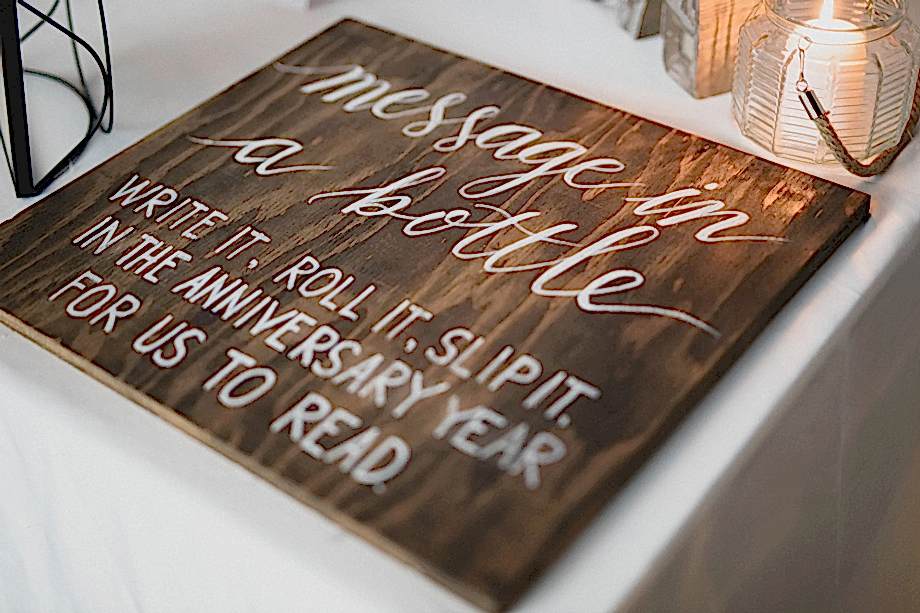 message in
a bottle
WRITE IT, ROLL IT, SLIP IT.
IN THE ANNIVERSARY YEAR
FOR US TO READ.